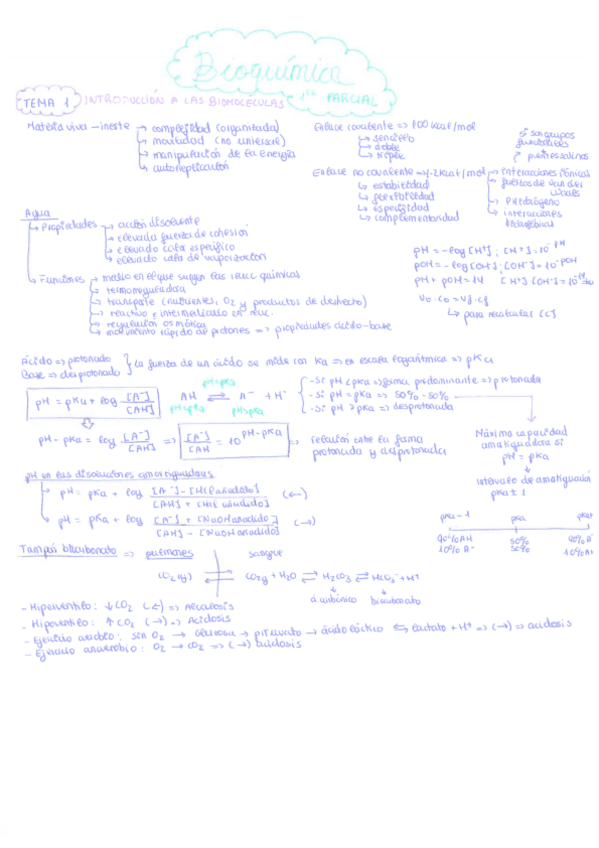 Bioquímica
TEMA 1 INTRODUCCIÓN A LAS BIOMOLÉCULAS 1er PARCIAL
Materia viva - inerte → complejidad (organizada)
→ movilidad (no universal)
→ manipulación de la energía
→ autorreplicación
Enlace covalente => 100 kcal/mol
→ sencillo
→ doble
→ triple
si son grupos funcionales
puentes salinos
Enlace no covalente => 1-2 kcal/mol → interacciones iónicas
→ fuerzas de van der Waals
→ P. Hidrógeno
→ interacciones hidrofóbicas
→ estabilidad
→ flexibilidad
→ especificidad
→ complementariedad
Agua
→ Propiedades → acción disolvente
→ elevada fuerza de cohesión
→ elevado calor específico
→ elevado calor de vaporización
→ Funciones → medio en el que surgen las reacc químicas
→ termorreguladora
→ transporte (nutrientes, O2 y productos de deshecho)
→ reactivo e intermediario en reacc.
→ regulación osmótica
→ movimiento rápido de protones => propiedades ácido-base
pH = -log [H+] ; [H+] = 10^-pH
pOH = -log [OH-] ; [OH-] = 10^-pOH
pH + pOH = 14 [H+] [OH-] = 10^-14
V0 · C0 = Vf · Cf
→ para recalcular [C]
Ácido => protonado
Base => desprotonado
} La fuerza de un ácido se mide con Ka => en escala logarítmica => pKa
pH = pKa + log [A-]/[AH]
pH=pKa
AH ⇌ A- + H+
pH<pKa pH>pKa
- Si pH < pKa => forma predominante => protonada
- Si pH = pKa => 50% - 50%
- Si pH > pKa => desprotonada
pH - pKa = log [A-]/[AH] => [A-]/[AH] = 10^pH-pKa => relación entre la forma protonada y desprotonada
Máxima capacidad amortiguadora si
pH = pKa
intervalo de amortiguación
pKa ± 1
pH en las disoluciones amortiguadoras
→ pH = pKa + log [A-] - [HCl añadido] / [AH] + [HCl añadido] (←)
→ pH = pKa + log [A-] + [NaOH añadido] / [AH] - [NaOH añadido] (→)
pKa-1 pKa
90% AH 50%
10% A- 50% 10% AH
Tampón bicarbonato => pulmones sangre
CO2(g) CO2g + H2O ⇌ H2CO3 ⇌ HCO3- + H+
á. carbónico bicarbonato
- Hiperventileo: ↓CO2 (←) => Alcalosis
- Hipoventileo: ↑CO2 (→) => Acidosis
- Ejercicio aerobio: sin O2 → Glucosa → piruvato → ácido láctico ⇆ lactato + H+ => (→) => acidosis
- Ejercicio anaerobio: O2 → CO2 => (→) acidosis